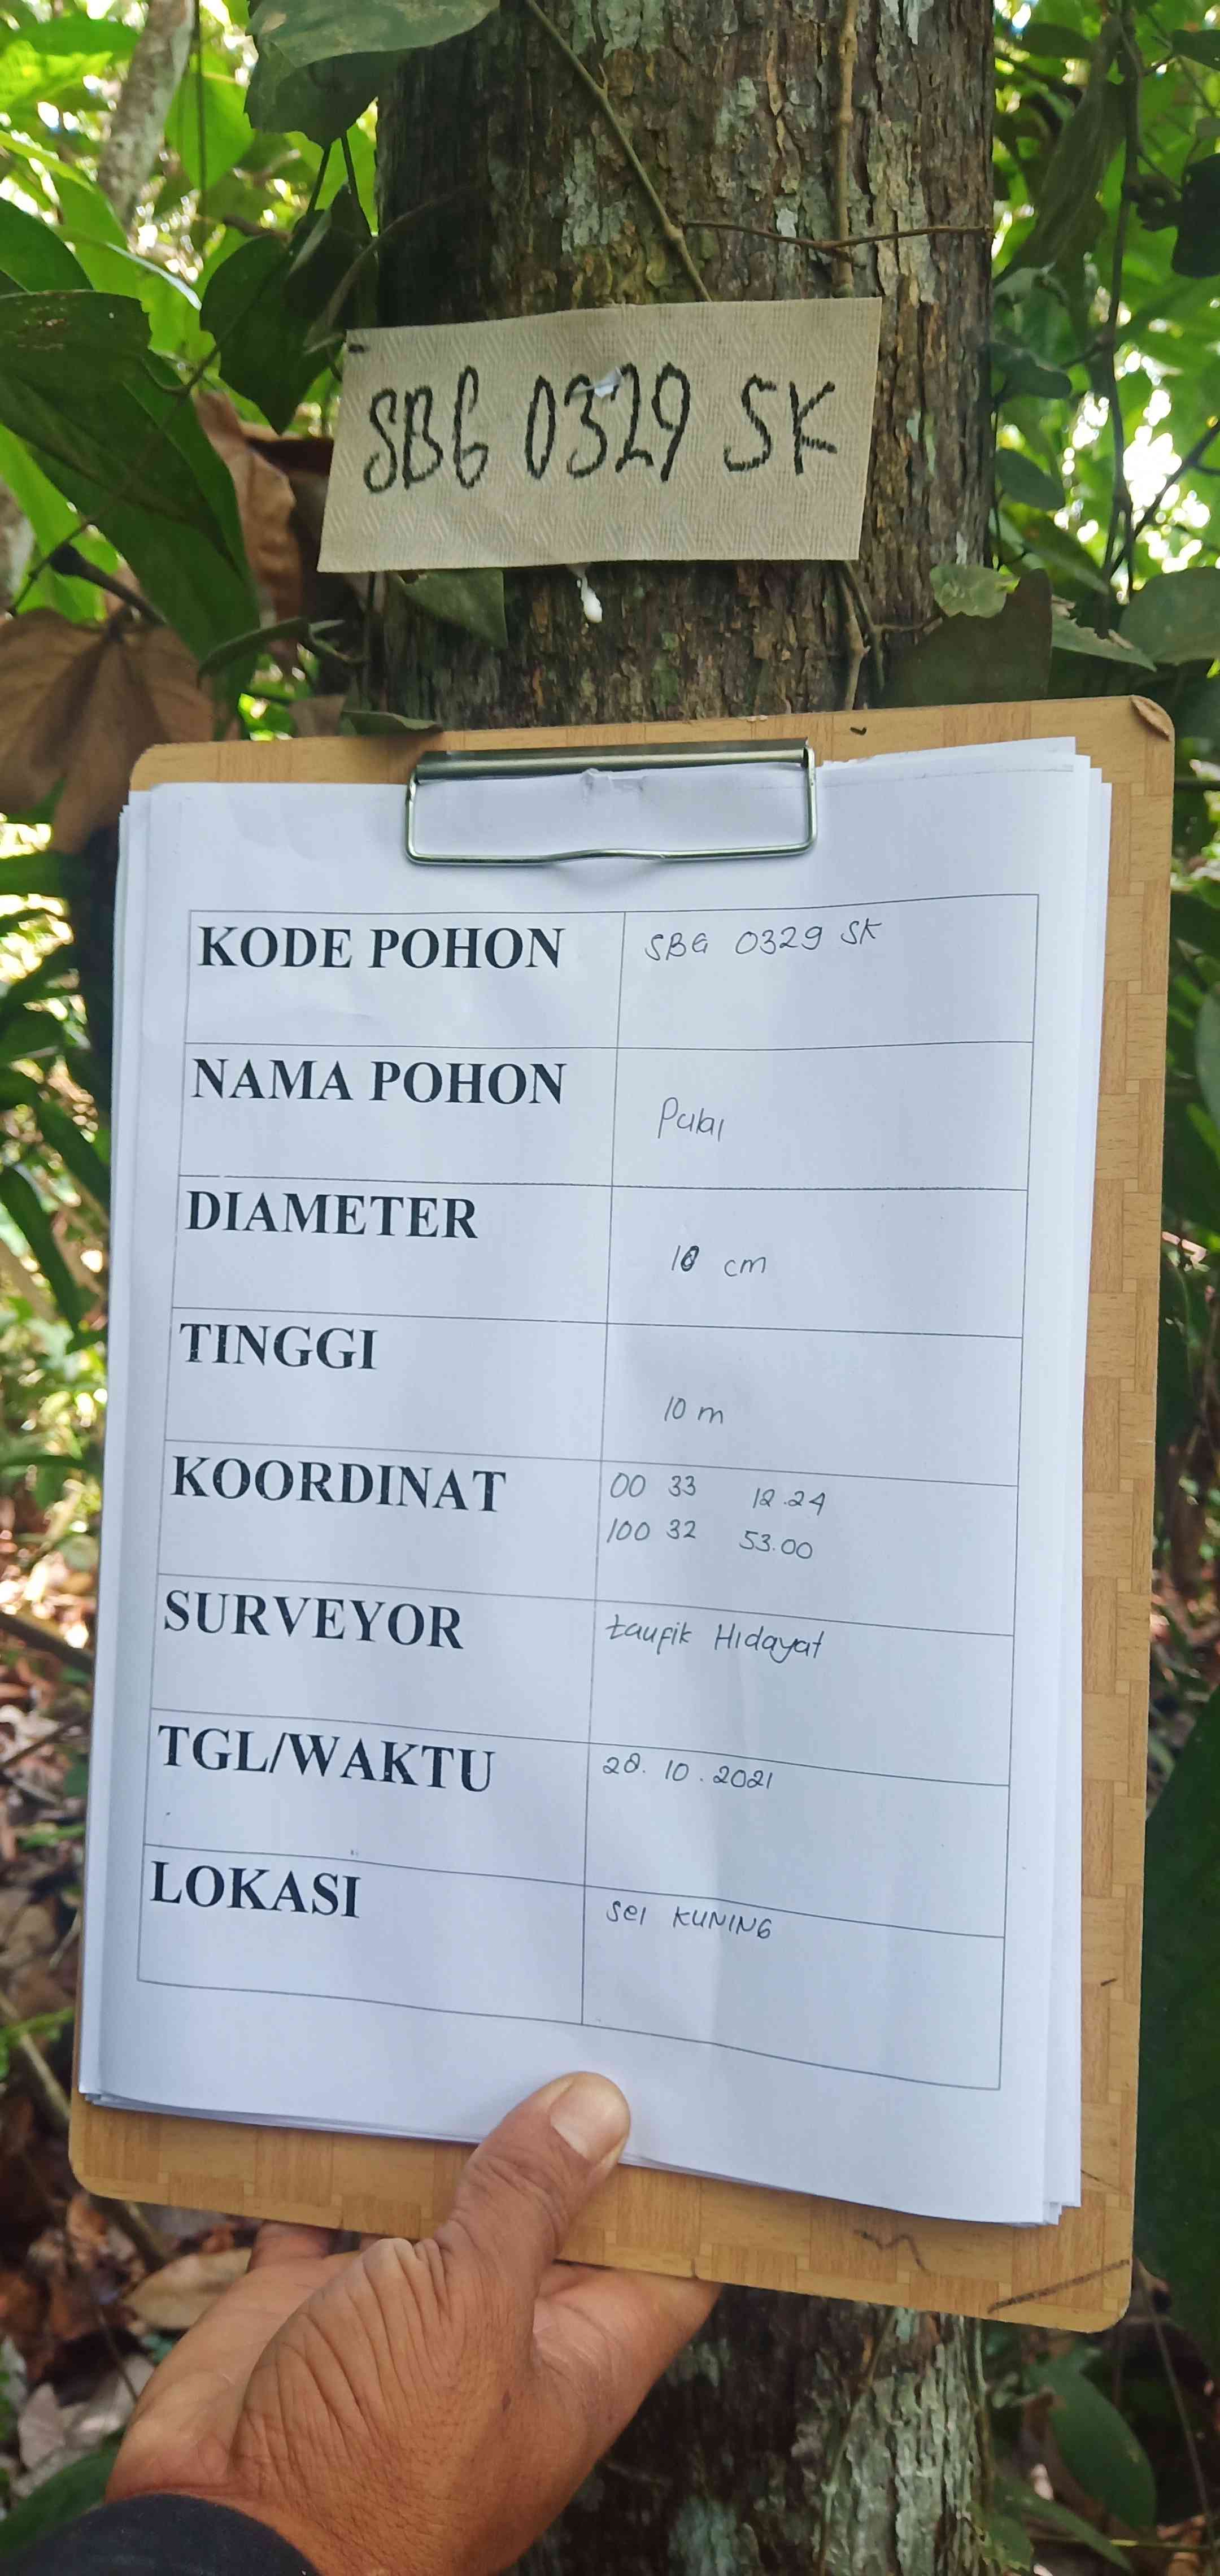 SBG 0329 SK
KODE POHON SBG 0329 SK
NAMA POHON Pulai
DIAMETER 18 cm
TINGGI 10 m
KOORDINAT 00 33 12.24
100 32 53.00
SURVEYOR taufik Hidayat
TGL/WAKTU 28.10.2021
LOKASI Sei KUNING